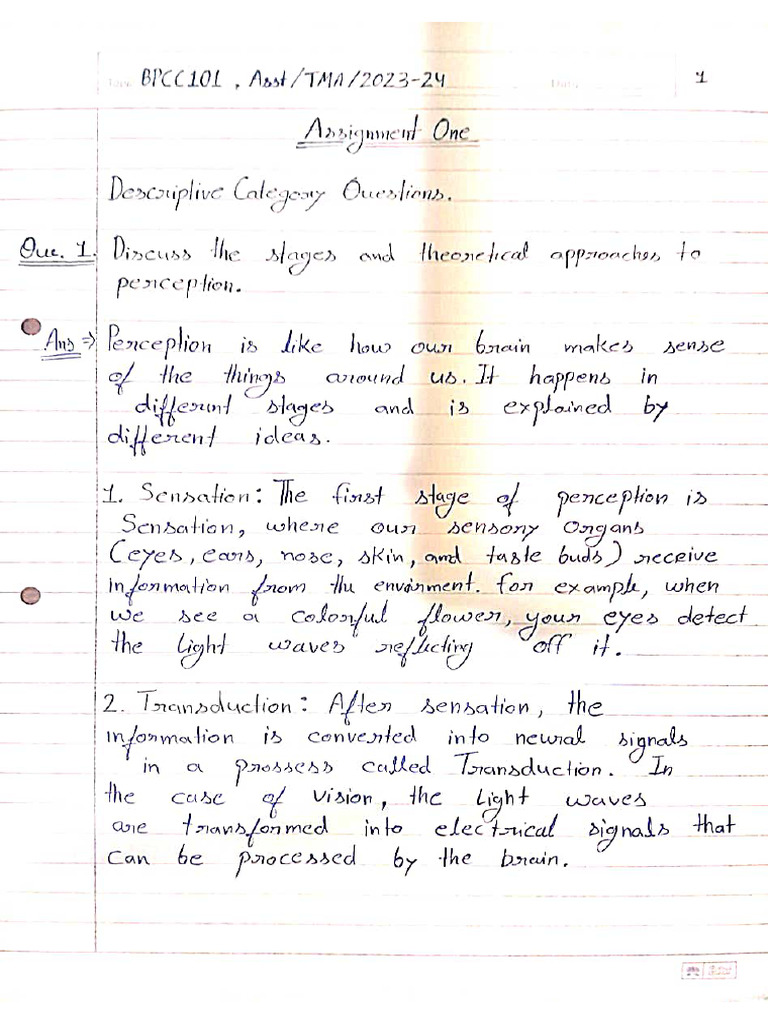 BPCC101, Asst/TMA/2023-24 1
Assignment One
Descriptive Category Questions.
Que. 1. Discuss the stages and theoretical approaches to
perception.
Ans ⇒ Perception is like how our brain makes sense
of the things around us. It happens in
different stages and is explained by
different ideas.
1. Sensation: The first stage of perception is
Sensation, where our sensory Organs
(eyes, ears, nose, skin, and taste buds) receive
information from the envirment. for example, when
we see a colorful flower, your eyes detect
the light waves reflecting off it.
2. Transduction: After sensation, the
information is converted into neural signals
in a prossess called Transduction. In
the case of vision, the light waves
are transformed into electrical signals that
can be processed by the brain.